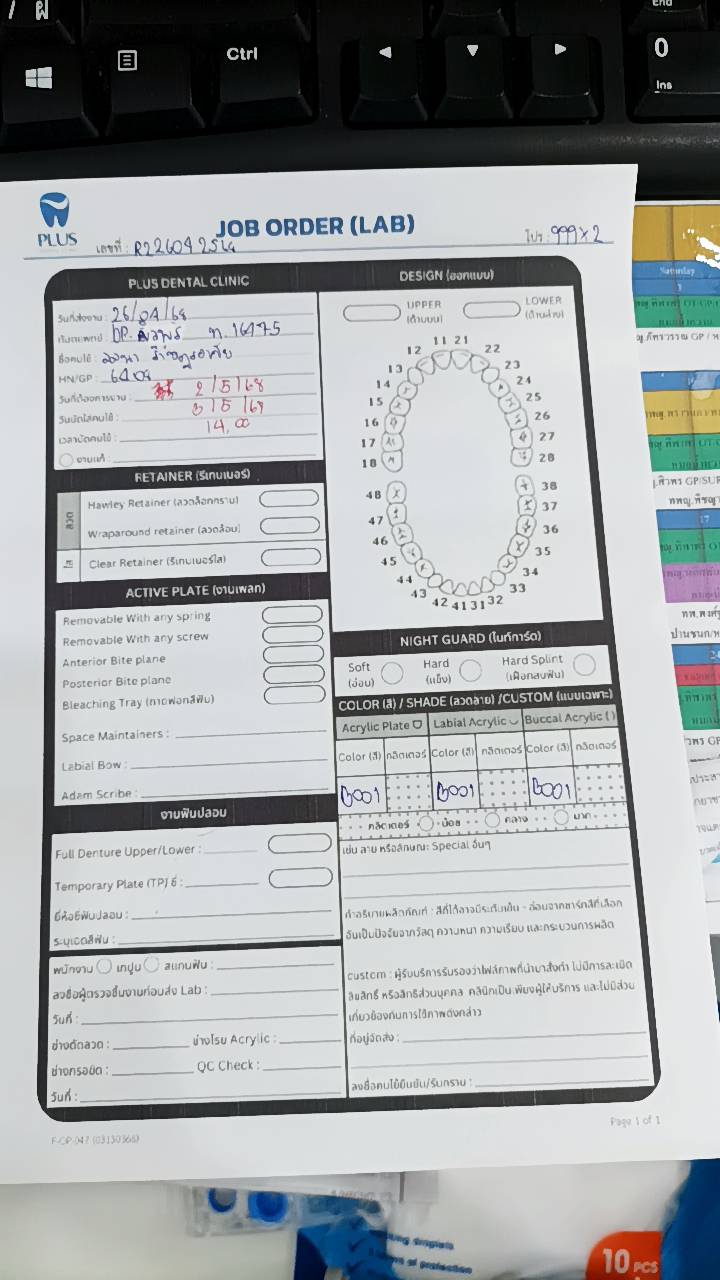 Ctrl
End
0
Ins
PLUS
JOB ORDER (LAB)
เลขที่ : R22604256
โปร : 999x2
PLUS DENTAL CLINIC
วันที่ส่งงาน : 26/04/68
ทันตแพทย์ : ท. 16475
ชื่อคนไข้ :
HN/GP :
วันที่ต้องการงาน : 2/5/68
วันนัดใส่คนไข้ : 3/5/68
เวลานัดคนไข้ : 14.00
งานแก้ :
RETAINER (รีเทนเนอร์)
ลวด
Hawley Retainer (ลวดล็อกกราม)
Wraparound retainer (ลวดอ้อม)
ใส
Clear Retainer (รีเทนเนอร์ใส)
ACTIVE PLATE (งานเพลท)
Removable With any spring
Removable With any screw
Anterior Bite plane
Posterior Bite plane
Bleaching Tray (ถาดฟอกสีฟัน)
Space Maintainers :
Labial Bow :
Adam Scribe :
งานฟันปลอม
Full Denture Upper/Lower :
Temporary Plate (TP) ซี่ :
ยี่ห้อซี่ฟันปลอม :
ระบุเฉดสีฟัน :
พนักงาน เทปูน สแกนฟัน :
ลงชื่อผู้ตรวจชิ้นงานก่อนส่ง Lab :
วันที่ :
ช่างดัดลวด : ช่างโรย Acrylic :
ช่างกรอขัด : QC Check :
วันที่ :
DESIGN (ออกแบบ)
UPPER (ด้านบน)
LOWER (ด้านล่าง)
11 21
12 22
13 23
14 24
15 25
16 26
17 27
18 28
48 38
47 37
46 36
45 35
44 34
43 33
42 41 31 32
NIGHT GUARD (ไนท์การ์ด)
Soft (อ่อน)
Hard (แข็ง)
Hard Splint (เฝือกสบฟัน)
COLOR (สี) / SHADE (ลวดลาย) /CUSTOM (แบบเฉพาะ)
Acrylic Plate Labial Acrylic Buccal Acrylic ( )
Color (สี) กลิตเตอร์ Color (สี) กลิตเตอร์ Color (สี) กลิตเตอร์
B001 B001 B001
กลิตเตอร์ น้อย กลาง มาก
เช่น ลาย หรือลักษณะ Special อื่นๆ
คำอธิบายผลิตภัณฑ์ : สีที่ได้อาจมีระดับเข้ม - อ่อนจากชาร์ทสีที่เลือก
อันเป็นปัจจัยจากวัสดุ ความหนา ความเรียบ และกระบวนการผลิต
custom : ผู้รับบริการรับรองว่าไฟล์ภาพที่นำมาสั่งทำ ไม่มีการละเมิด
ลิขสิทธิ์ หรือสิทธิส่วนบุคคล คลินิกเป็นเพียงผู้ให้บริการ และไม่มีส่วน
เกี่ยวข้องกับการใช้ภาพดังกล่าว
ที่อยู่จัดส่ง :
ลงชื่อคนไข้ยืนยัน/รับทราบ :
Page 1 of 1
Saturday
10 PCS